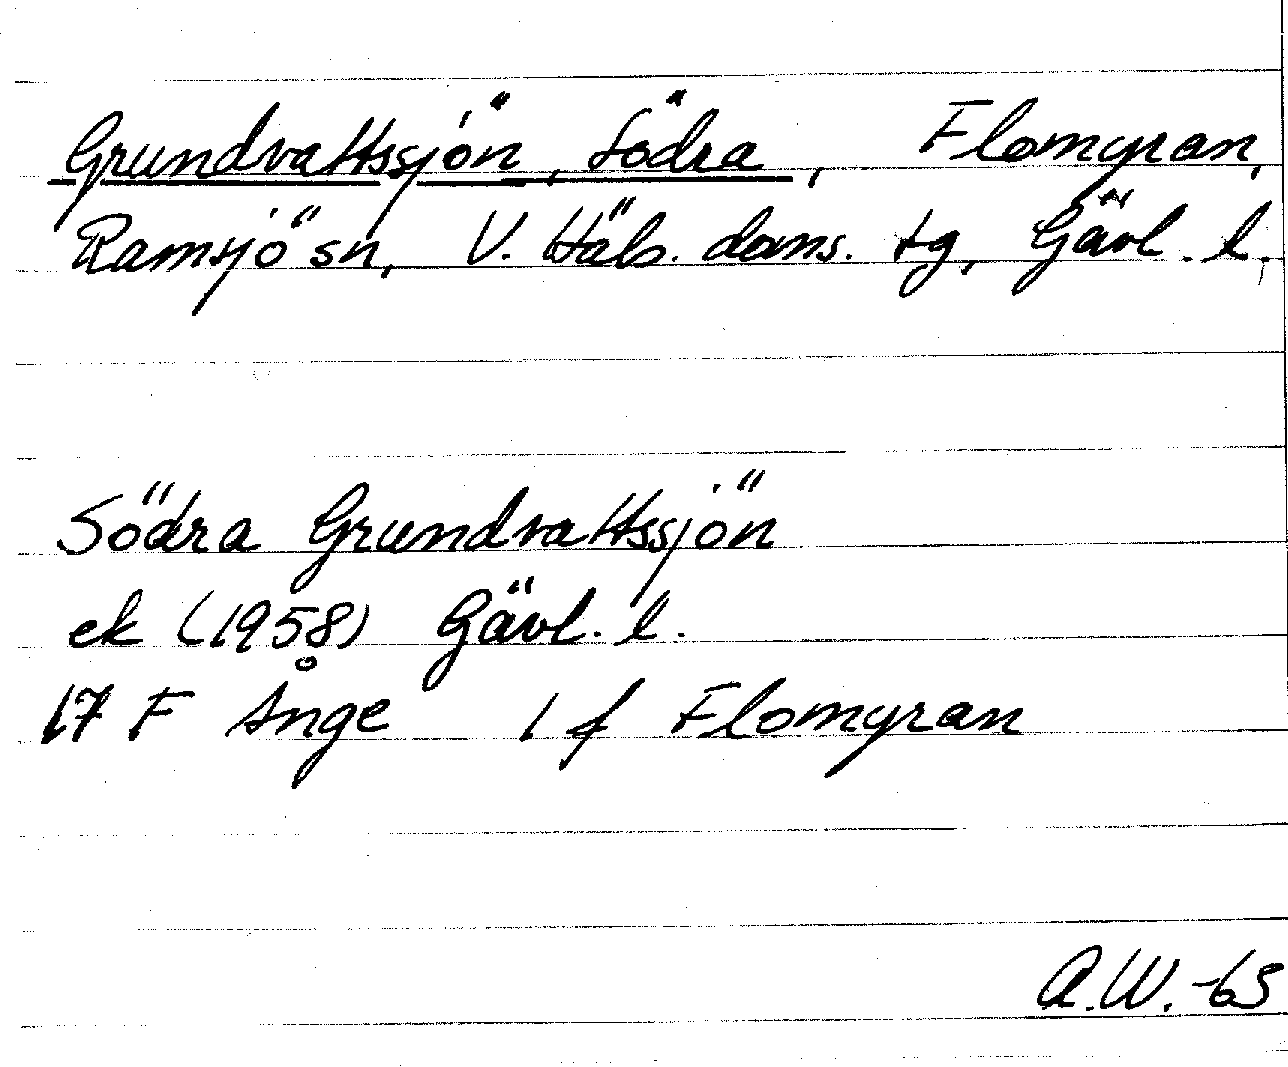 Grundvattssjön, Södra, Flomyran,
Ramsjö sn, V. Häls. doms. tg, Gävl. l.
Södra Grundvattssjön
ek (1958) Gävl. l.
17 F Ånge 1 f Flomyran
A.W.-63